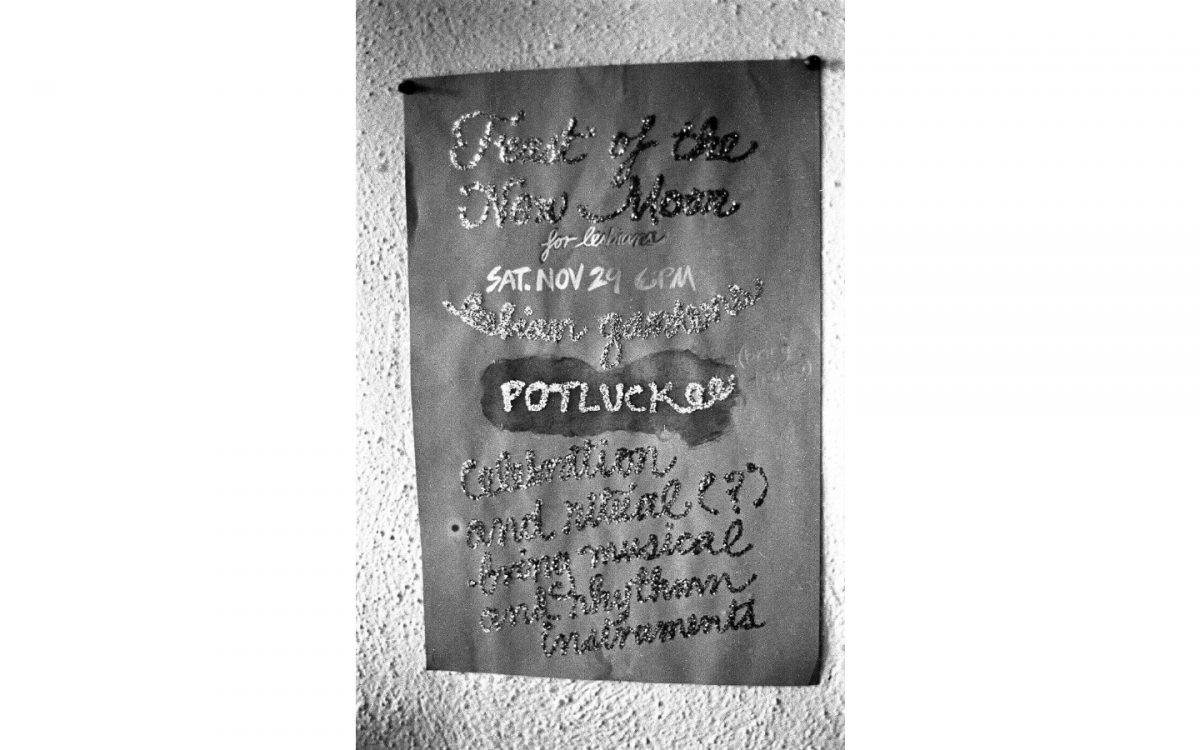 Feast of the
New Moon
for lesbians
SAT. NOV 29 6PM
lesbian gardens
POTLUCK
(bring
Celebration
and ritual (?)
bring musical
and rhythmn
instruments